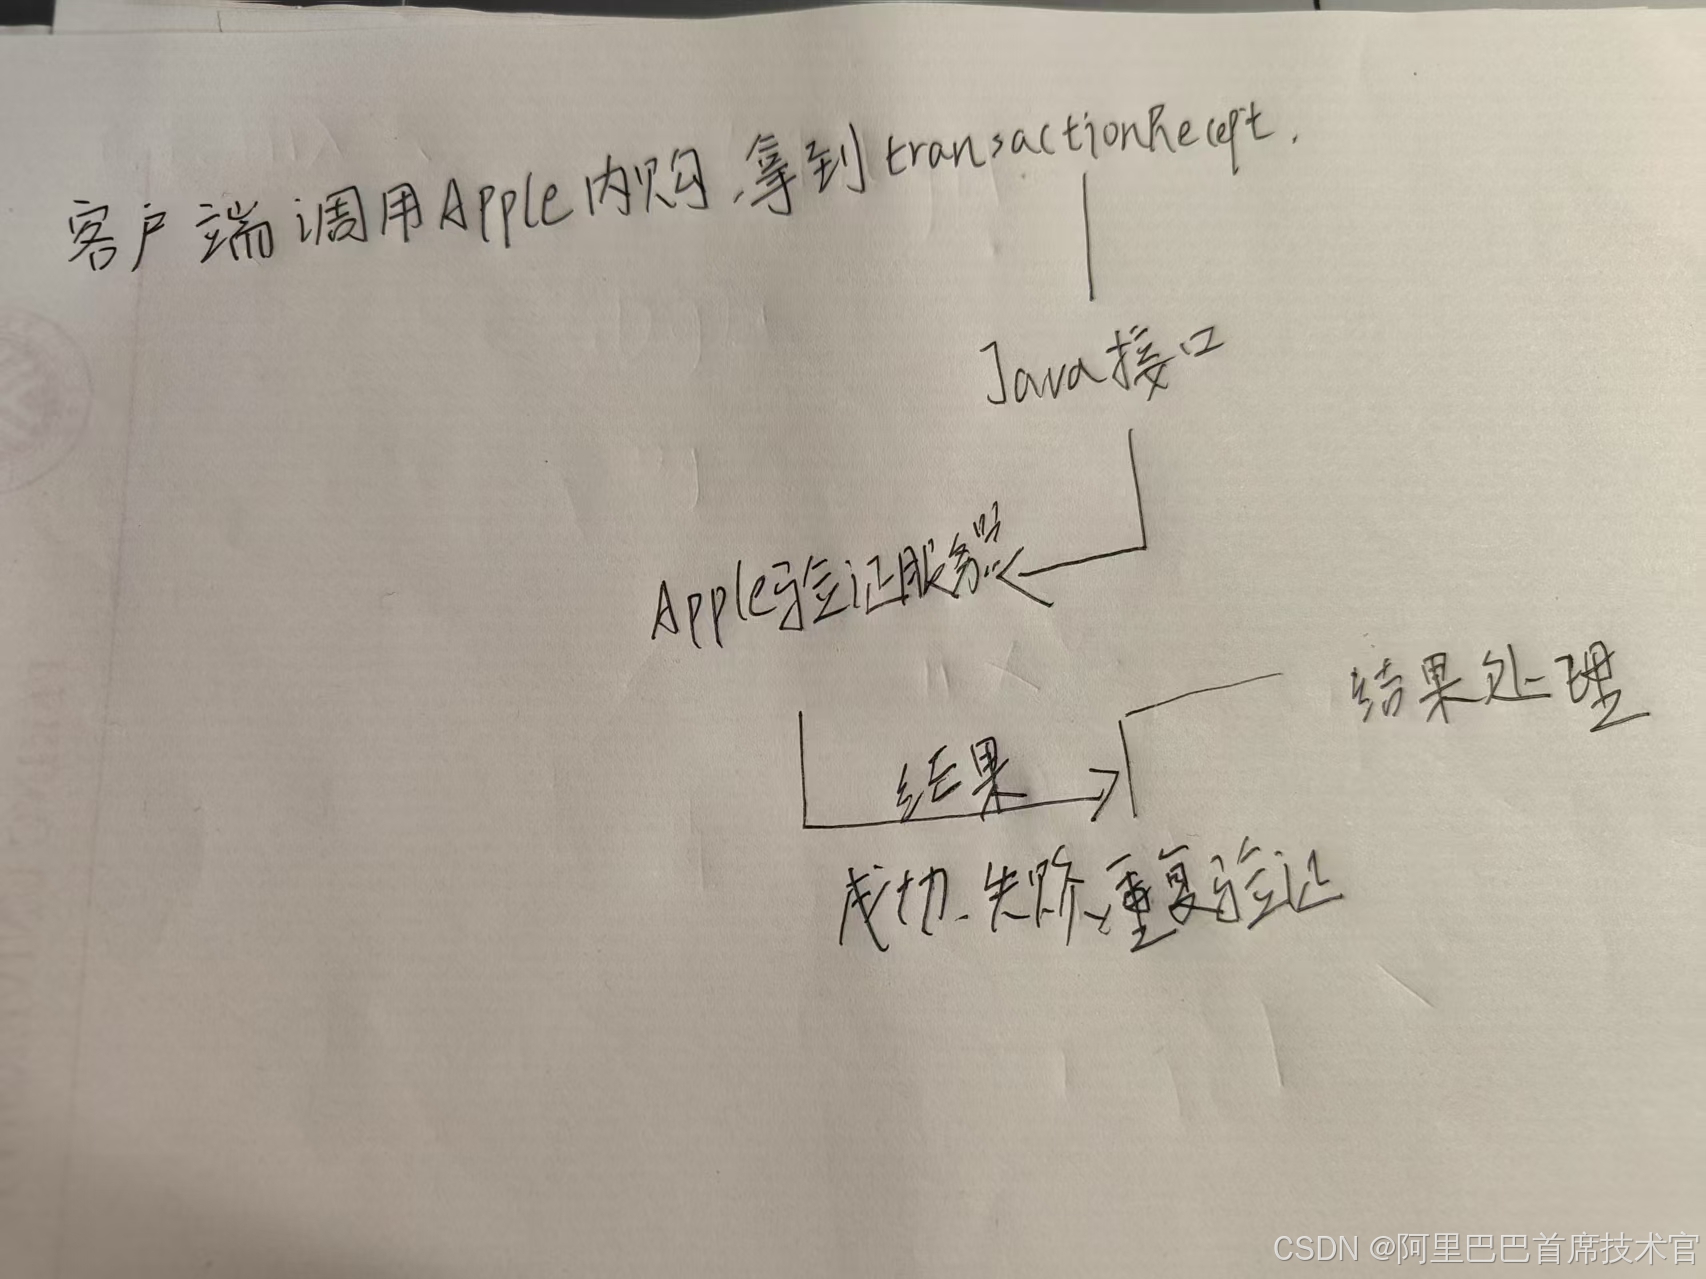 客户端调用Apple内购、拿到transactionRecept.
Java接口
Apple验证服务器
结果处理
结果
成功、失败、重复验证
CSDN @阿里巴巴首席技术官